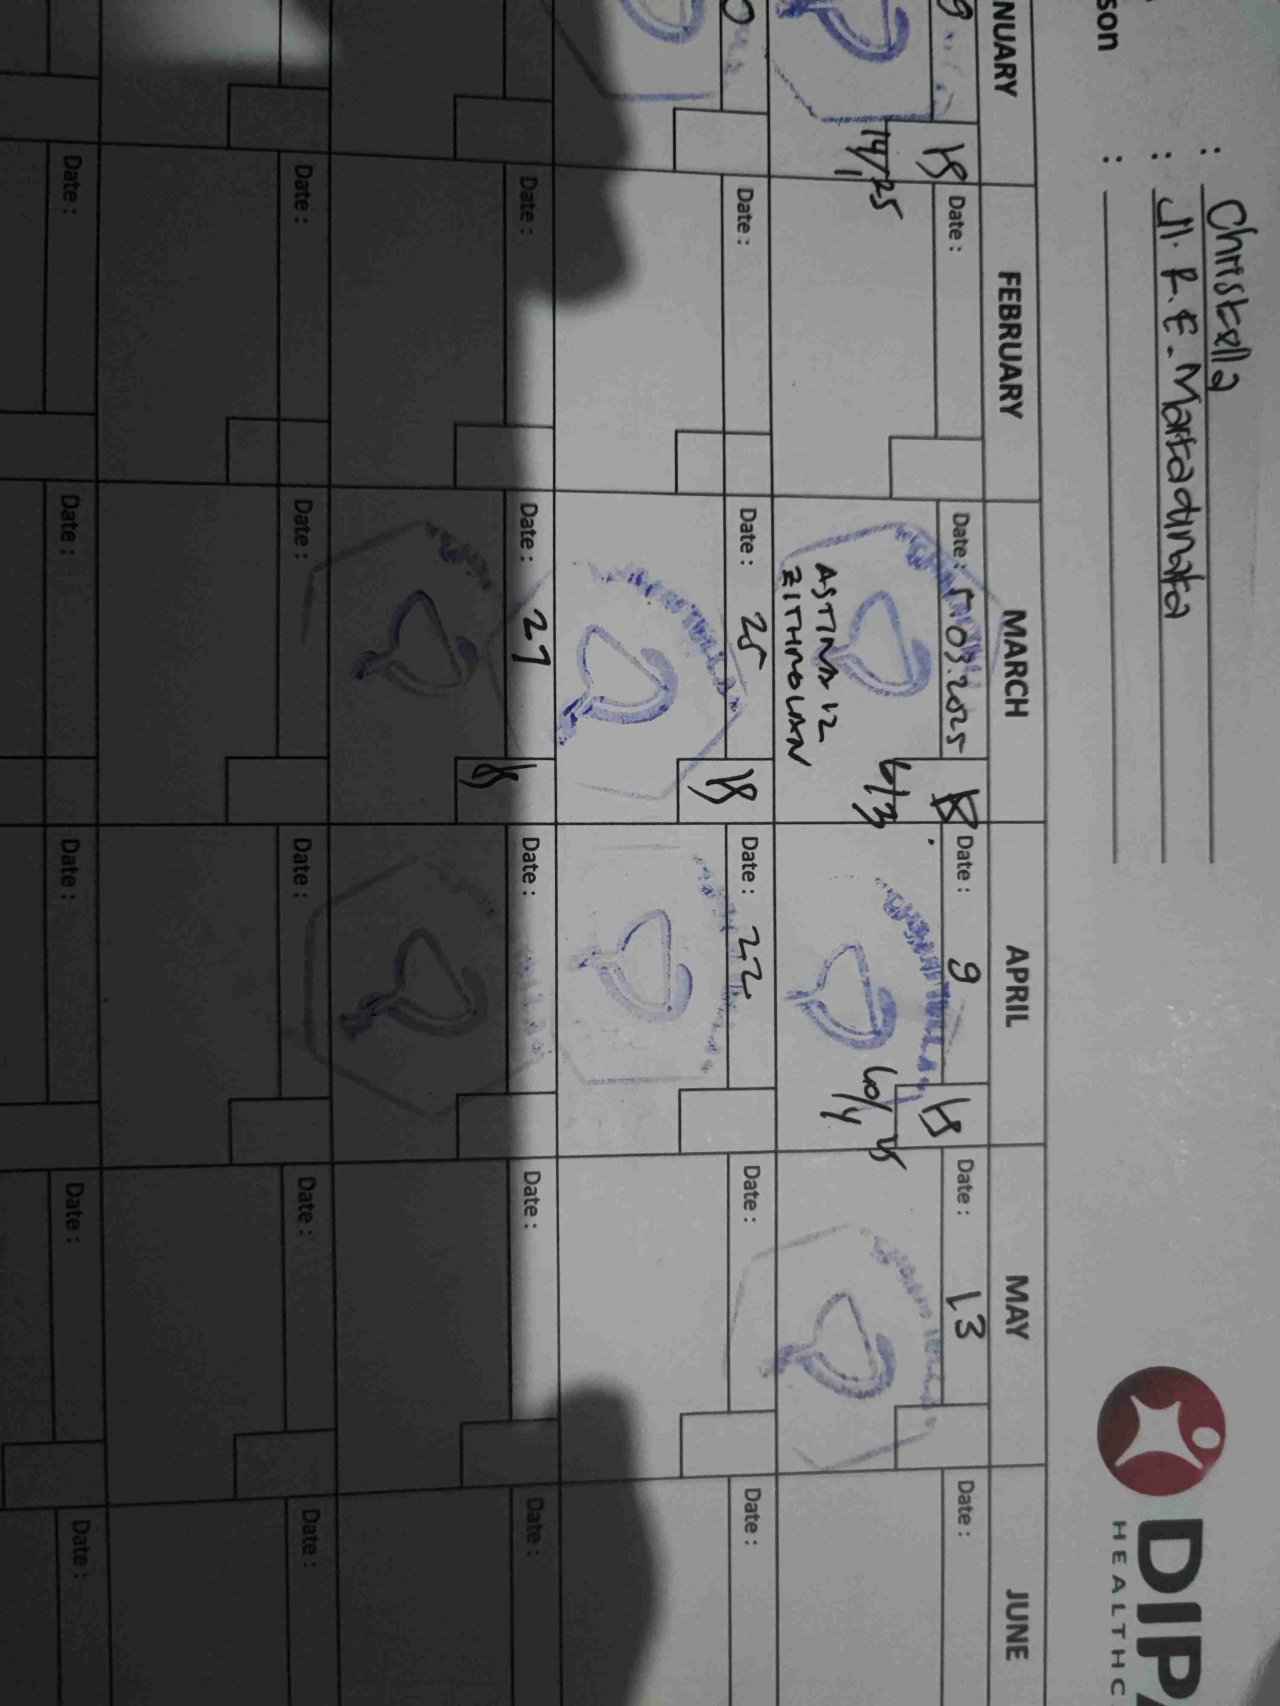 son
: Christella
: Jl. R.E. Martadinata
:
DIPA
HEALTHC
NUARY FEBRUARY MARCH APRIL MAY JUNE
9 Date : Date : 5.03.2025 Date : 9 Date : 13 Date :
14/1 25
6/3
ASTINA 12
ZITHROLAN
10/4 25
0 Date : Date : 25 Date : 22 Date : Date :
Date : Date : 27 Date : Date : Date :
Date : Date : Date : Date : Date :
Date : Date : Date : Date : Date :